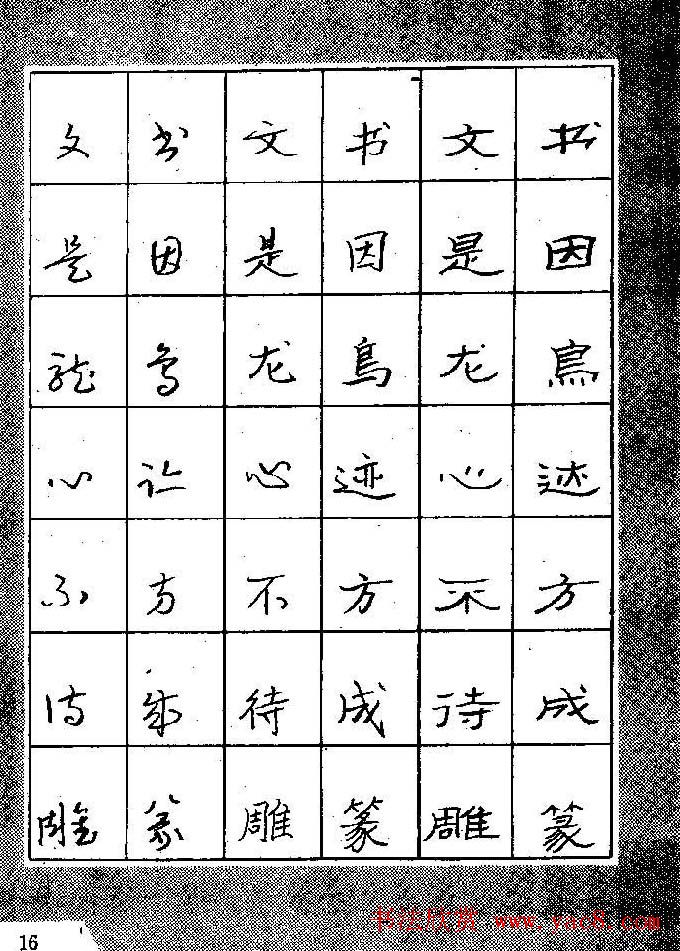 书因鳥迹方成篆
文是龙心不待雕
书因鳥迹方成篆
文是龙心不待雕
书因鳥迹方成篆
文是龍心不待雕
16
书法欣赏 www.yac8.com